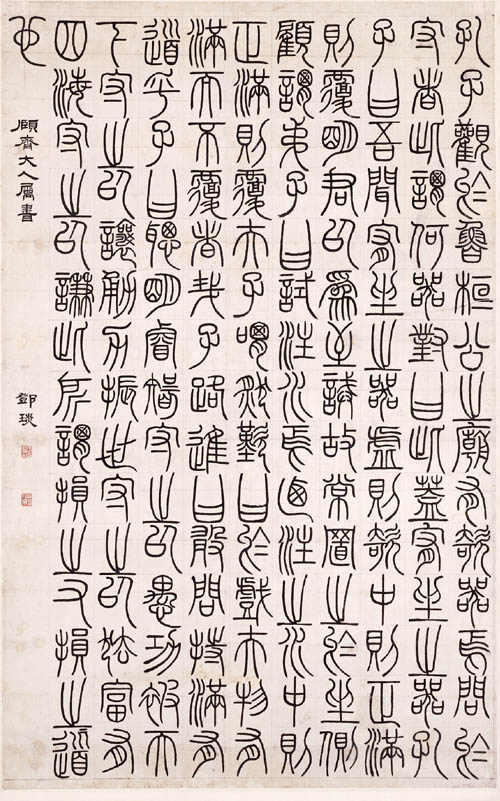 孔子觀於魯桓公之廟有欹器焉問於
守者此謂何器對曰此蓋宥坐之器孔
子曰吾聞宥坐之器虛則欹中則正滿
則覆明君以為至誡故常置之於坐側
顧謂弟子曰試注水焉迺注之水中則
正滿則覆夫子喟然歎曰於戲夫物有
滿而不覆者哉子路進曰敢問持滿有
道乎子曰聰明睿智守之以愚功被天
下守之以讓勇力振世守之以怯富有
四海守之以謙此所謂損之又損之道
也
頤齊大人屬書 鄧琰